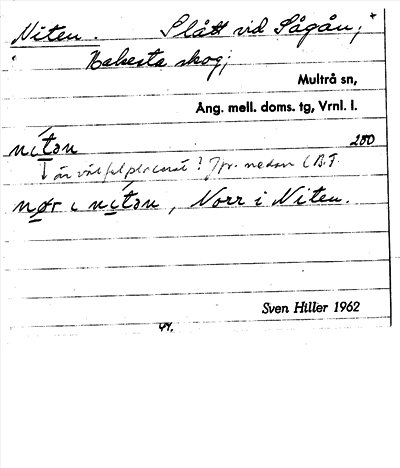 Niten. Slått vid Sågån;
Nakesta skog;
Multrå sn,
Ang. mell. doms. tg, Vrnl. l.
nı́tən 250
är väl felplacerat? Jfr. nedan
nør i nı́tən, Norr i Niten.
Sven Hiller 1962
44.